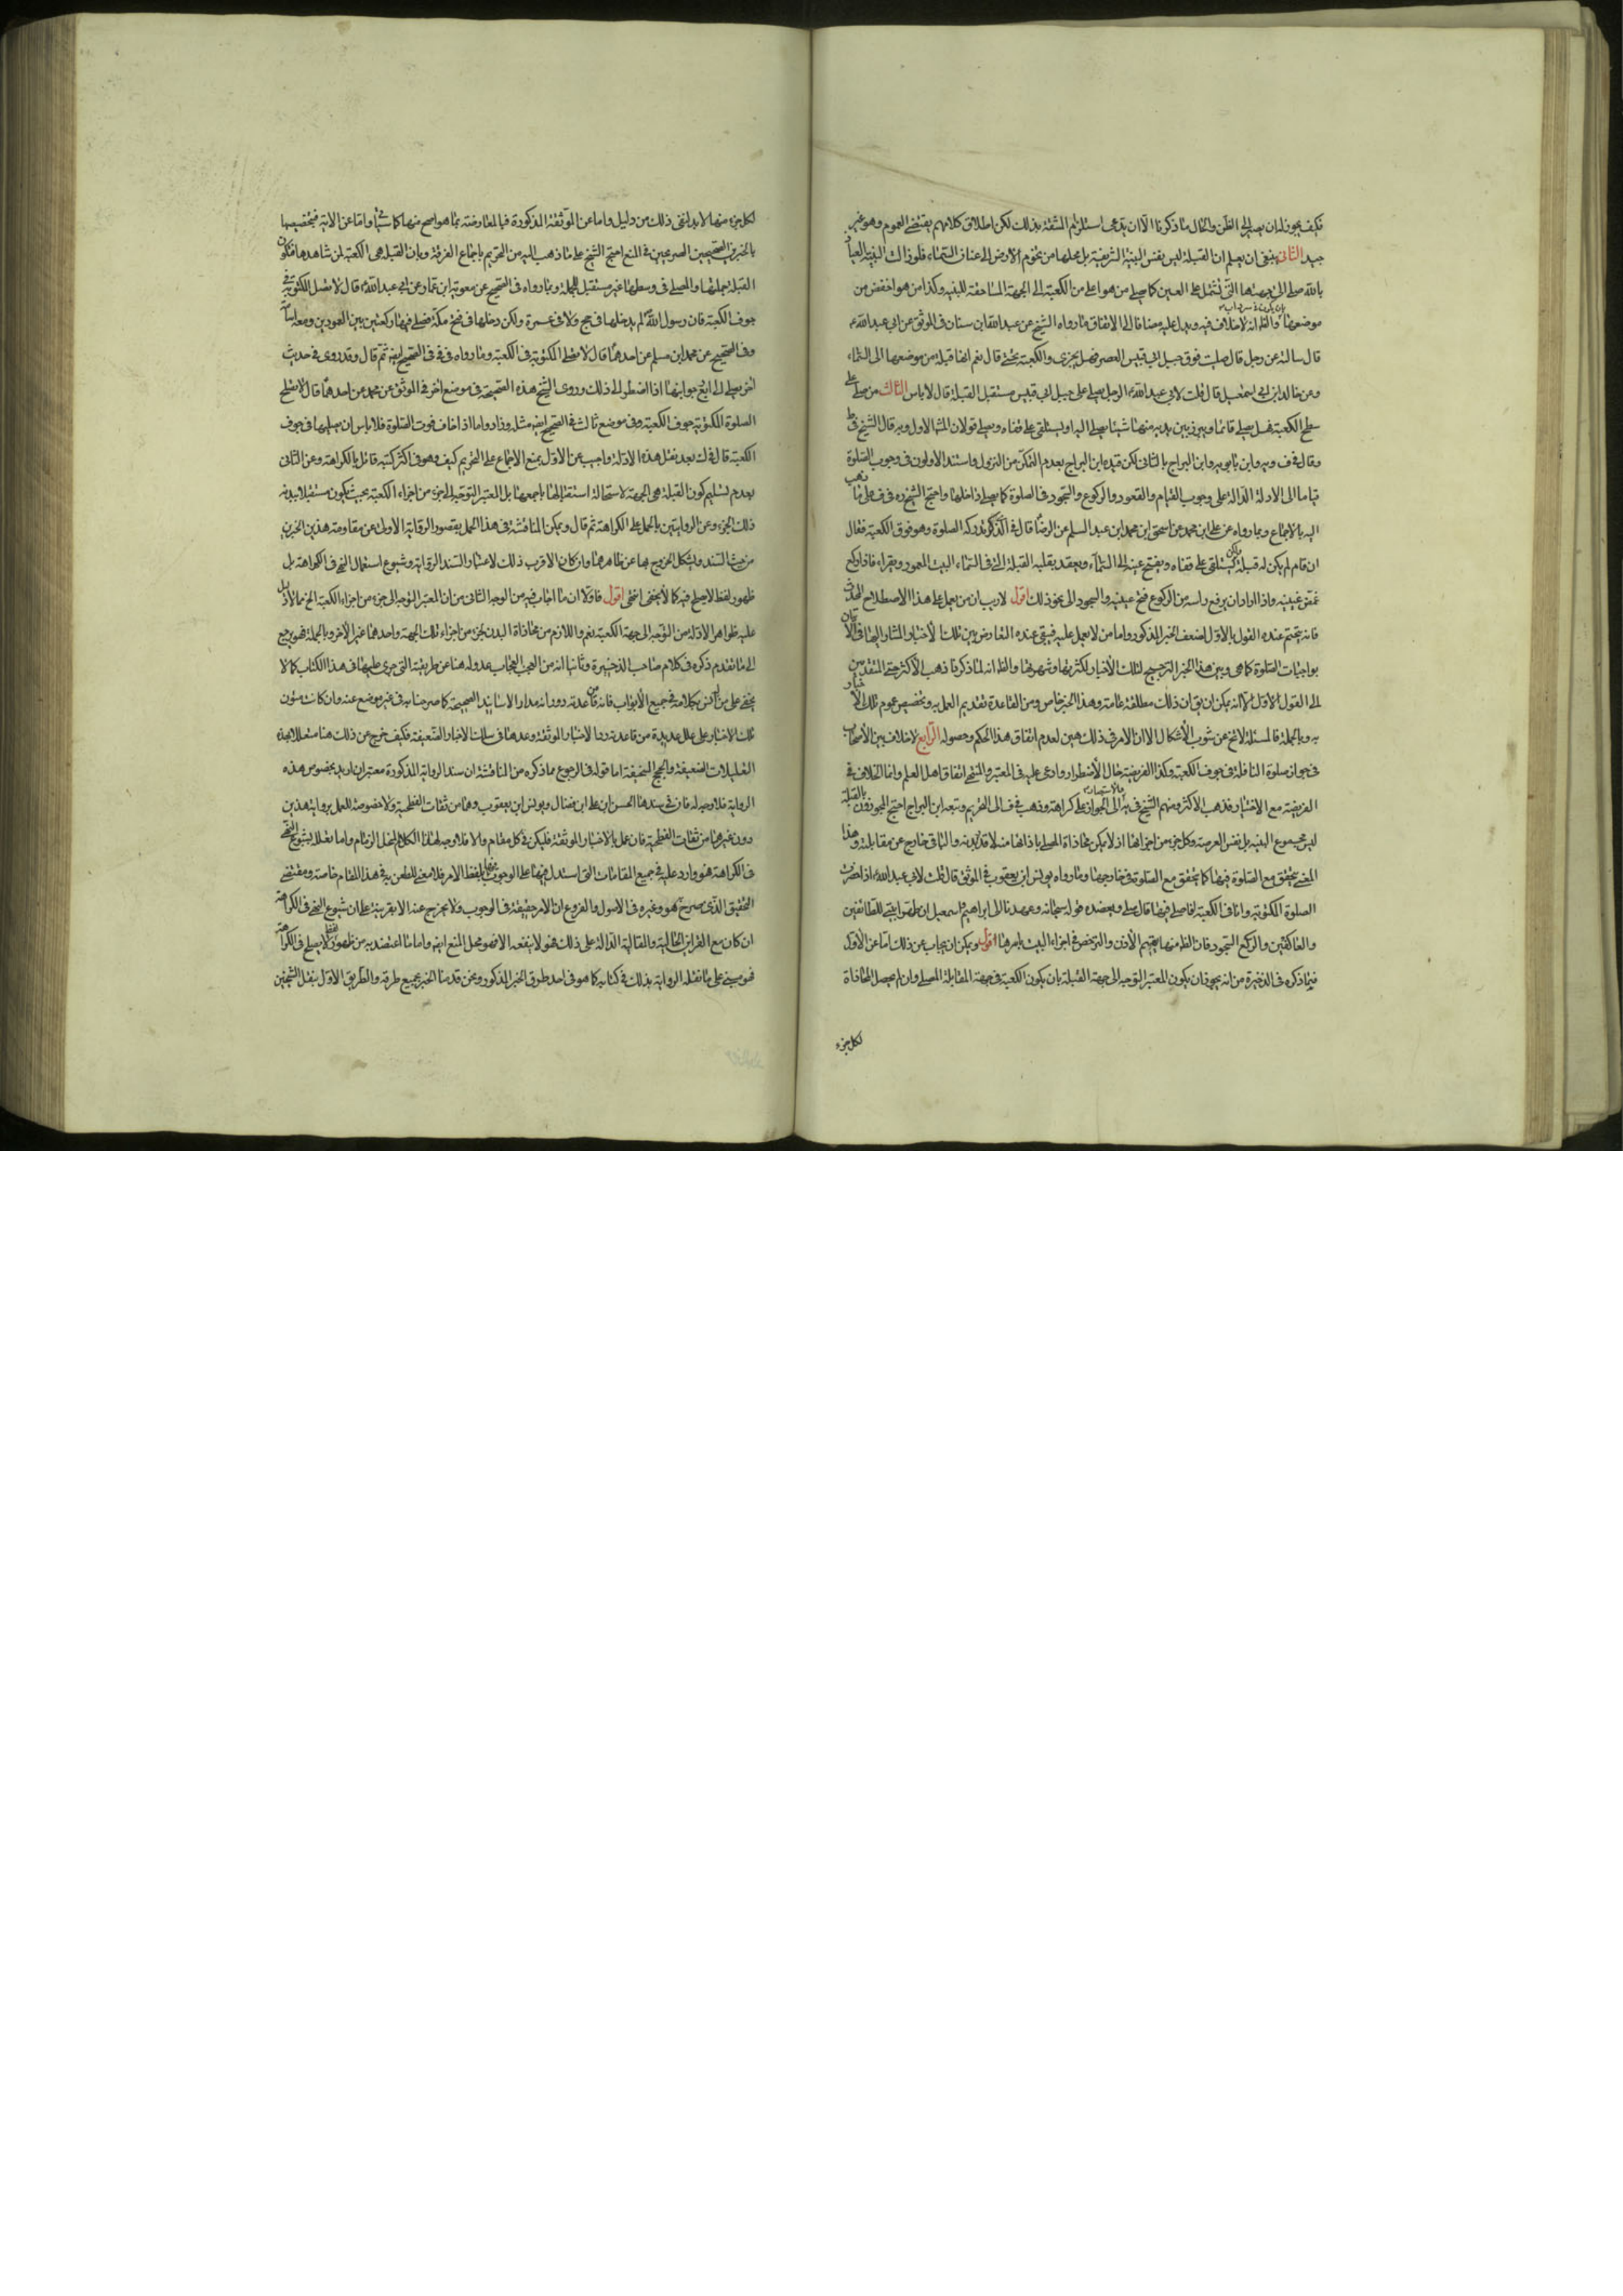 فكيف يجوز له ان يصير الى الظن والحال ما ذكرنا الا ان يدعى استلزام المشقة بذلك لكن اطلاق كلامهم يقتضى العموم وهو غير
جيد الثانى ينبغى ان يعلم ان القبلة ليس نفس البنية الشريفة بل محلها من تخوم الارض الى عنان السماء فلو زالت البنية والعياذ
بالله صلى الى جهتها التى تشتمل على العين كما يصلى من هو اعلى من الكعبة الى الجهة المسامتة للبنية وكذا من هو اخفض من
موضعها والظ انه لا خلاف فيه ويدل عليه مضافا الى الاتفاق ما رواه الشيخ عن عبد الله ابن سنان فى الموثق عن ابى عبد الله ع
قال سالته عن رجل قال صليت فوق جبل ابى قبيس العصر فهل يجزى والكعبة تحتى قال نعم انها قبلة من موضعها الى السماء
وعن خالد ابن ابى اسمعيل قال قلت لابى عبد الله ع الرجل يصلى على جبل ابى قبيس مستقبل القبلة قال لا باس الثالث من صلى على
سطح الكعبة هل يصلى قائما ويبرز بين يديه منها شيئا يصلى اليه او يستلقى على قفاه ويصلى قولان المش الاول وبه قال الشيخ فى ط
وقال فى ف وبه وابن بابويه وابن البراج بالثانى لكن قيده ابن البراج بعدم التمكن من النزول واستند الاولون فى وجوب الصلوة
قياما الى الادلة الدالة على وجوب القيام والقعود والركوع والسجود فى الصلوة كما يصلى داخلها واحتج الشيخ ره فى ف على ما ذهب
اليه بالاجماع وبما رواه عن على ابن محمد عن اسحق ابن محمد ابن عبد السلم عن الرضا ع قال فى الذى تدركه الصلوة وهو فوق الكعبة فقال
ان قام لم يكن له قبلة ولكن يستلقى على قفاه ويفتح عينيه الى السماء ويعقد بقلبه القبلة التى فى السماء البيت المعمور ويقراء فاذا ركع
غمض عينيه واذا اراد ان يرفع راسه من الركوع فتح عينيه والسجود الى نحو ذلك اقول لا ريب ان من يعمل على هذا الاصطلاح المحدث
فانه يتحتم عنده القول بالاول لضعف الخبر المذكور واما من لا يعمل عليه فيبقى عنده التعارض بين تلك الاخبار المشار اليها فى الاتيان
بواجبات الصلوة كما هى وبين هذا الخبر والترجيح لتلك الاخبار لكثرتها وشهرتها والظ انه لما ذكرنا ذهب الاكثر حتى المتقدمين
الى القول الاول الا انه يمكن ان يق ان ذلك مطلقة عامة وهذا الخبر خاص ومن القاعدة تقديم العمل به وتخصيص عموم تلك الاخبار
به وبالجملة فالمسئلة لا تخ عن شوب الاشكال الا ان الامر فى ذلك هين لعدم اتفاق هذا الحكم وحصوله الرابع لا خلاف بين الاصحاب
فى جواز صلوة النافلة فى جوف الكعبة وكذا الفريضة حال الاضطرار وادعى عليه فى المعتبر والمنتهى اتفاق اهل العلم وانما الخلاف فى
الفريضة مع الاختيار فذهب الاكثر ومنهم الشيخ فى يه الى الجواز على كراهة وذهب فى ف الى التحريم وتبعه ابن البراج احتج المجوزون بان القبلة
ليس مجموع البنية بل نفس العرصة وكل جزء من اجزائها اذ لا يمكن محاذاة المصلى باذائها منه لا قدر بدنه والباقى خارج عن مقابلته وهذا
المعنى يتحقق مع الصلوة فيها كما يتحقق مع الصلوة فى خارجها وما رواه يونس ابن يعقوب فى الموثق قال قلت لابى عبد الله ع اذا حضرت
الصلوة المكتوبة وانا فى الكعبة افاصلى فيها قال صل ويعضده قوله سبحانه وعهدنا الى ابراهيم واسمعيل ان طهرا بيتى للطائفين
والعاكفين والركع السجود فان الظ منها تعميم الاذن والترخص فى اجزاء البيت باسرها اقول ويمكن ان يجاب عن ذلك اما عن الاول
فبما ذكره فى الذخيرة من انه يجوز ان يكون المعتبر التوجه الى جهة القبلة بان يكون الكعبة فى جهة المقابلة المصلى وان لم يحصل المحاذاة
لكل جزء
لكل جزء منها لا بد لنفى ذلك من دليل واما عن الموثقة المذكورة فبالمعارضة بما هو اصح منها كما سياتى واما عن الاية فبتخصيصها
بالخبرين الصحيحين الصريحين فى المنع احتج الشيخ على ما ذهب اليه من التحريم باجماع الفرقة وبان القبلة هى الكعبة لمن شاهدها فتكون
القبلة جملتها والمصلى فى وسطها غير مستقبل الجملة وبما رواه فى الصحيح عن معوية ابن عمار عن ابى عبد الله ع قال لا تصل المكتوبة فى
جوف الكعبة فان رسول الله ص لم يدخلها فى حج ولا فى عمرة ولكن دخلها فى فتح مكة فصلى فيها ركعتين بين العمودين ومعه اسامة
وفى الصحيح عن محمد ابن مسلم عن احدهما قال لا تصلى المكتوبة فى الكعبة وما رواه فى فى فى الصحيح ايض ثم قال وقد روى فى حديث
اخر يصلى الى اربع جوانبها اذا اضطر الى ذلك وروى الشيخ هذه الصحيحة فى موضع اخر فى الموثق عن محمد عن احدهما قال لا تصلح
الصلوة المكتوبة جوف الكعبة وفى موضع ثالث فى الصحيح ايض مثله وزاد واما اذا خاف فوت الصلوة فلا باس ان يصليها فى جوف
الكعبة قال فى ك بعد نقل هذه الادلة واجيب عن الاول بمنع الاجماع على التحريم كيف وهو فى اكثر كتبه قائل بالكراهة وعن الثانى
بعدم تسليم كون القبلة هى الجهة لاستحالة استقبالها باجمعها بل المعتبر التوجه الى جزء من اجزاء الكعبة بحيث يكون مستقبلا ببدنه
ذلك الجزء وعن الروايتين بالحمل على الكراهة ثم قال ويمكن المناقشة فى هذا الحمل بقصور الرواية الاولى عن مقاومة هذين الخبرين
من حيث السند فيشكل الخروج بها عن ظاهرهما وان كان الاقرب ذلك لاعتبار السند الرواية وشيوع استعمال النهى فى الكراهة بل
ظهور لفظ لا يصلح فيه كما لا يخفى انتهى اقول فاولا ان ما اجاب به من الوجه الثانى من ان المعتبر التوجه الى جزء من اجزاء الكعبة الخ مما لا دليل
عليه ظواهر الادلة من التوجه الى جهة الكعبة نعم واللازم من محاذاة البدن لجزء من اجزاء تلك الجهة واحدهما غير الاخر وبالجملة فهو يرجع
الى ما تقدم ذكره فى كلام صاحب الذخيرة وثانيا انه من العجب العجاب عدوله هنا عن طريقته التى جرى عليها فى هذا الكتاب كما لا
يخفى على من انس بكلامه فى جميع الابواب فانه من قاعدته دورانه مدار الاسانيد الصحيحة كما صرحنا به فى غير موضع عنه وان كانت متون
تلك الاخبار على علل عديدة من قاعدته رد الاخبار الموثقة وعدها فى سلك الاخبار الضعيفة فكيف خرج عن ذلك هنا متعللا بهذه
التعليلات الضعيفة والحجج السخيفة اما قوله فى الرجوع مما ذكره من المناقشة ان سند الرواية المذكورة معتبر ان اريد بخصوص هذه
الرواية فلا وجه له فان فى سندها الحسن ابن على ابن فضال ويونس ابن يعقوب وهما من ثقات الفطحية ولا خصوصية للعمل برواية هذين
دون غيرهما من ثقات الفطحية فان عمل بالاخبار الموثقة فليكن فى كل مقام والا فلا وجه لهذا الكلام المنحل الزمام واما تعلله بشيوع النهى
فى الكراهة فهو وارد عليه فى جميع المقامات التى استدل فيها على الوجوب بلفظ الامر فلا معنى للطعن به فى هذا المقام خاصة ومقتضى
التحقيق الذى صرح هو وغيره فى الاصول والفروع ان الامر حقيقة فى الوجوب ولا يخرج عنه الا بقرينة على ان شيوع النهى فى الكراهة
ان كان مع القراين الحالية والمقالية الدالة على ذلك فهو لا ينفعه الا فهو محل المنع ايض واما ما اعتضد به من ظهور لفظ لا يصلح فى الكراهة
فهو مبنى على ما نقله الرواية بذلك فى كتابه كما هو فى احد طرق الخبر المذكور ونحن قدمنا الخبر بجميع طرقه والطريق الاول بنقل الشيخين